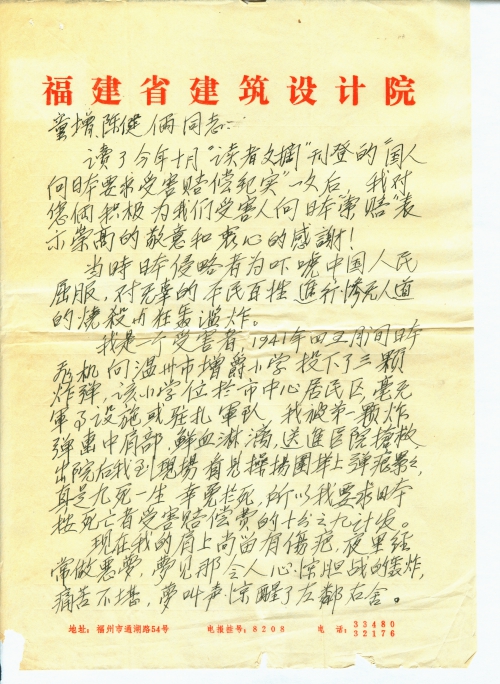 福建省建筑设计院
童增、陈健俩同志：
读了今年十月“读者文摘”刊登的“国人
向日本要求受害赔偿纪实”一文后，我对
您俩积极为我们受害人向日本索赔表
示崇高的敬意和衷心的感謝！
当時日本侵略者为吓唬中国人民
屈服，对无辜的平民百姓進行惨无人道
的燒殺与狂轰滥炸。
我是一个受害者，1941年四五月间日本
飛机向温州市增爵小学投下了三颗
炸弹，该小学位於市中心居民区，毫无
軍事设施或驻扎軍队，我被第一颗炸
弹击中肩部，鮮血淋漓，送進医院搶救
出院后我到现場看見操場围墙上弹痕累々，
真是九死一生幸免於死，所以我要求日本
按死亡者受害赔偿费的十分之九计发。
现在我的肩上尚留有傷疤，夜里经
常做恶夢，夢见那令人心惊胆战的轰炸，
痛苦不堪，夢叫声惊醒了左鄰右舍。
地址：福州市通湖路54号 电报挂号：8208 电话：33480
32176